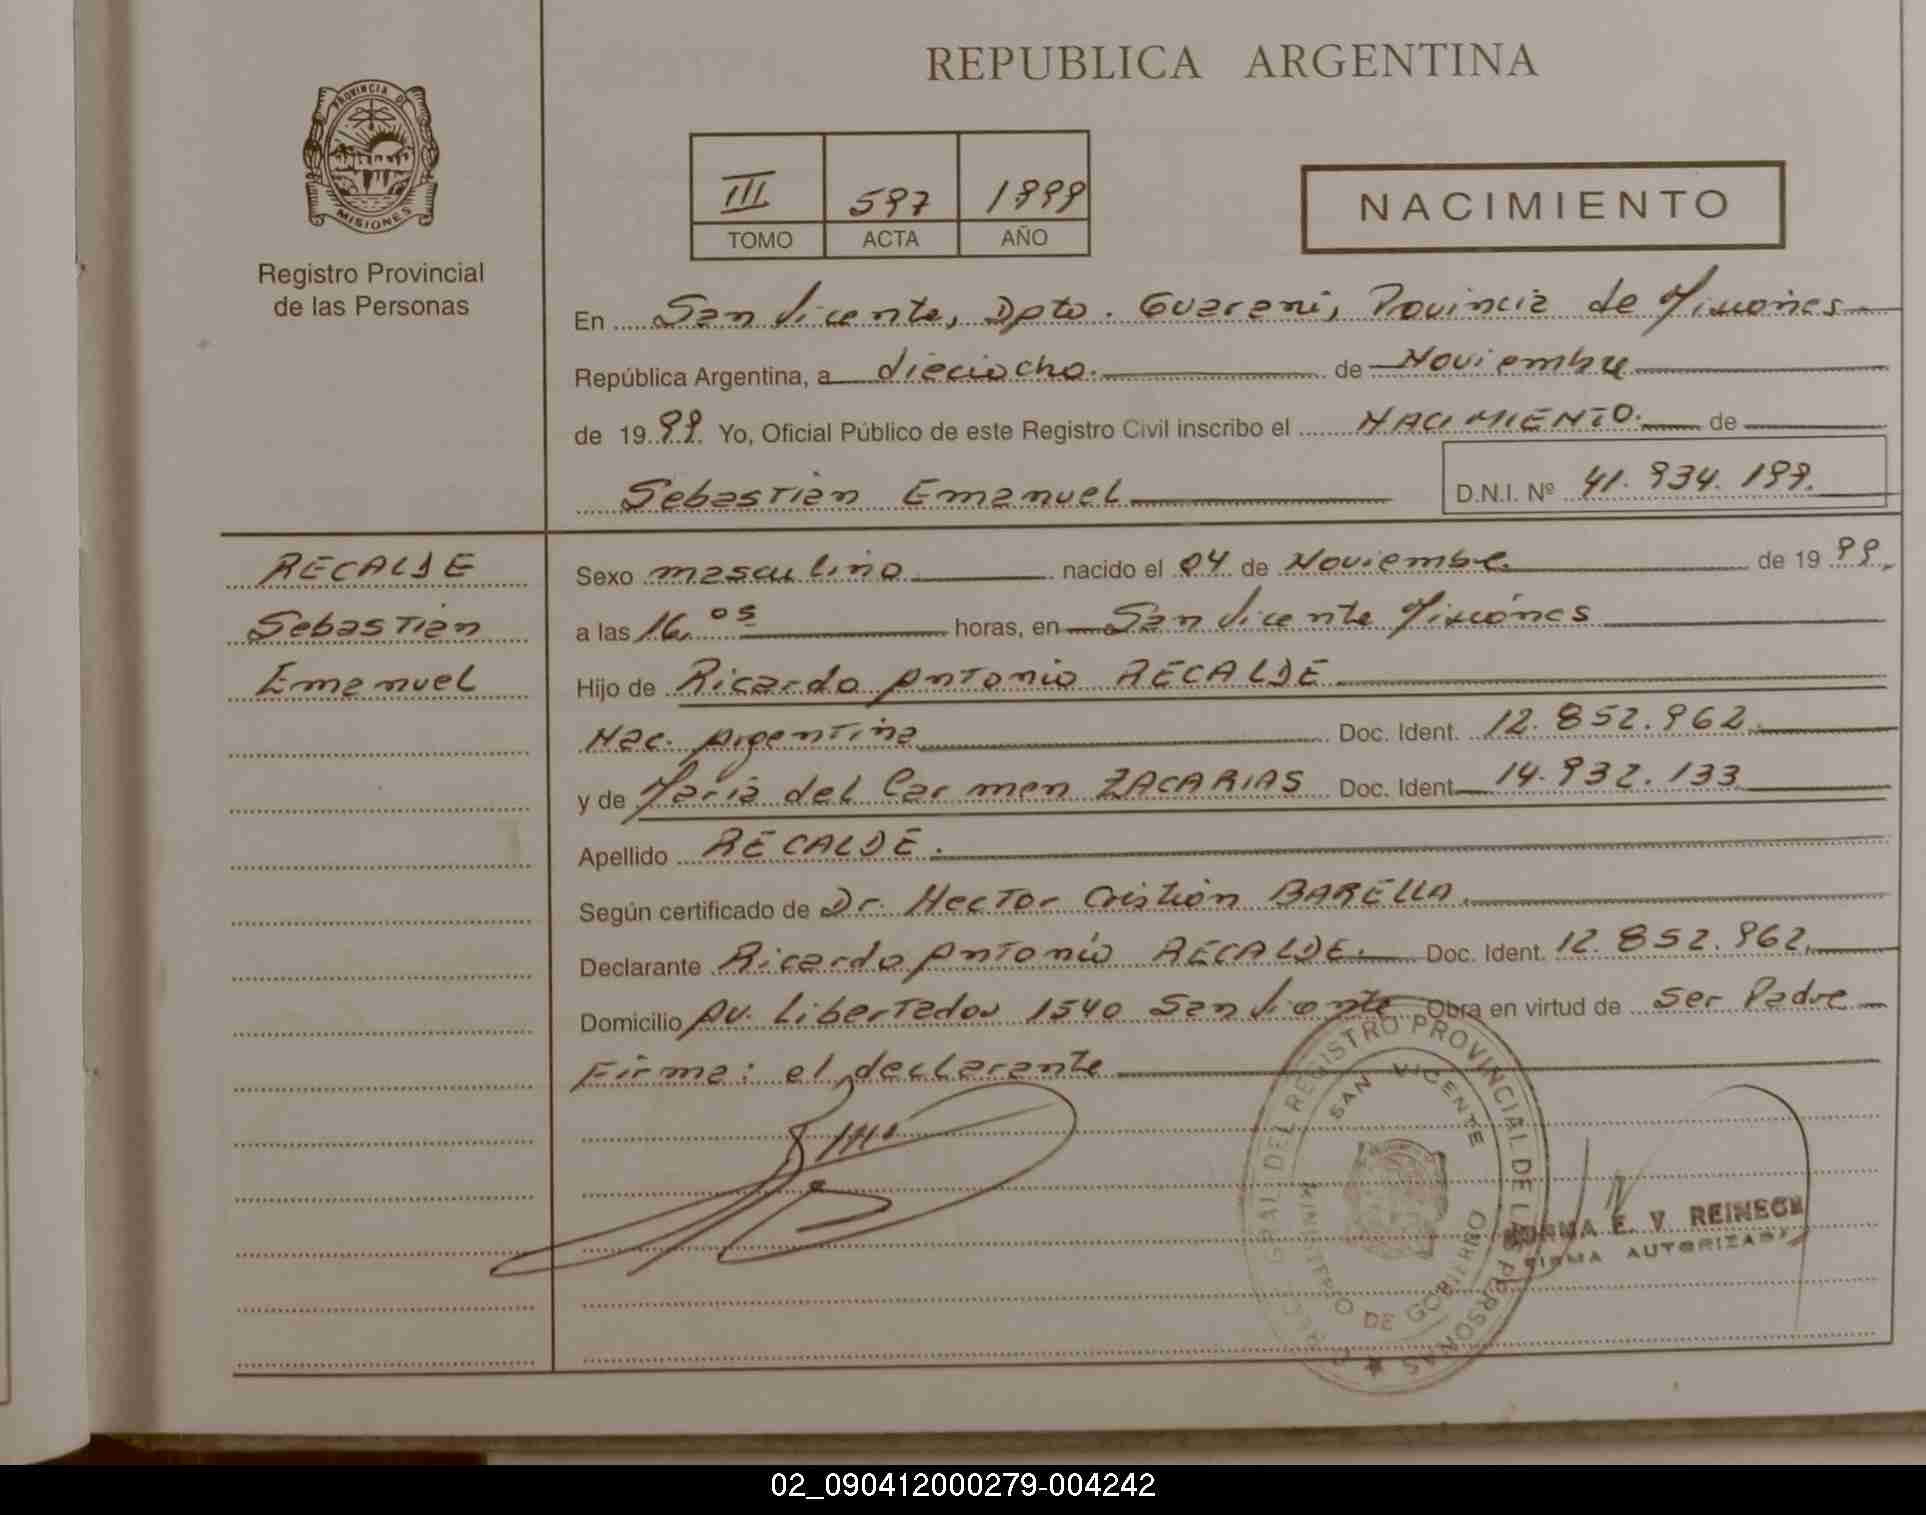 REPUBLICA ARGENTINA
PROVINCIA DE
MISIONES
Registro Provincial
de las Personas
III 597 1999
TOMO ACTA AÑO
NACIMIENTO
En San Vicente, Dpto. Guarani, Provincia de Misiones
República Argentina, a dieciocho. de Noviembre
de 1999. Yo, Oficial Público de este Registro Civil inscribo el NACIMIENTO. de
Sebastian Emanuel D.N.I. Nº 41.934.199.
RECALDE
Sebastian
Emanuel
Sexo masculino nacido el 04 de Noviembre de 1999.
a las 16,05 horas, en San Vicente Misiones
Hijo de Ricardo Antonio RECALDE
Nac. Argentina Doc. Ident. 12.852.962.
y de Maria del Carmen ZACARIAS Doc. Ident. 14.932.133
Apellido RECALDE.
Según certificado de Dr. Hector Cristián BARELLA.
Declarante Ricardo Antonio RECALDE. Doc. Ident. 12.852.962.
Domicilio Av. Libertador 1540 San Vicente Obra en virtud de Ser Padre
Firma: el declarante
GRAL DEL REGISTRO PROVINCIAL DE LAS PERSONAS
SAN VICENTE
MINISTERIO DE GOBIERNO
NORMA E. V. REINECK
FIRMA AUTORIZADA
02_090412000279-004242